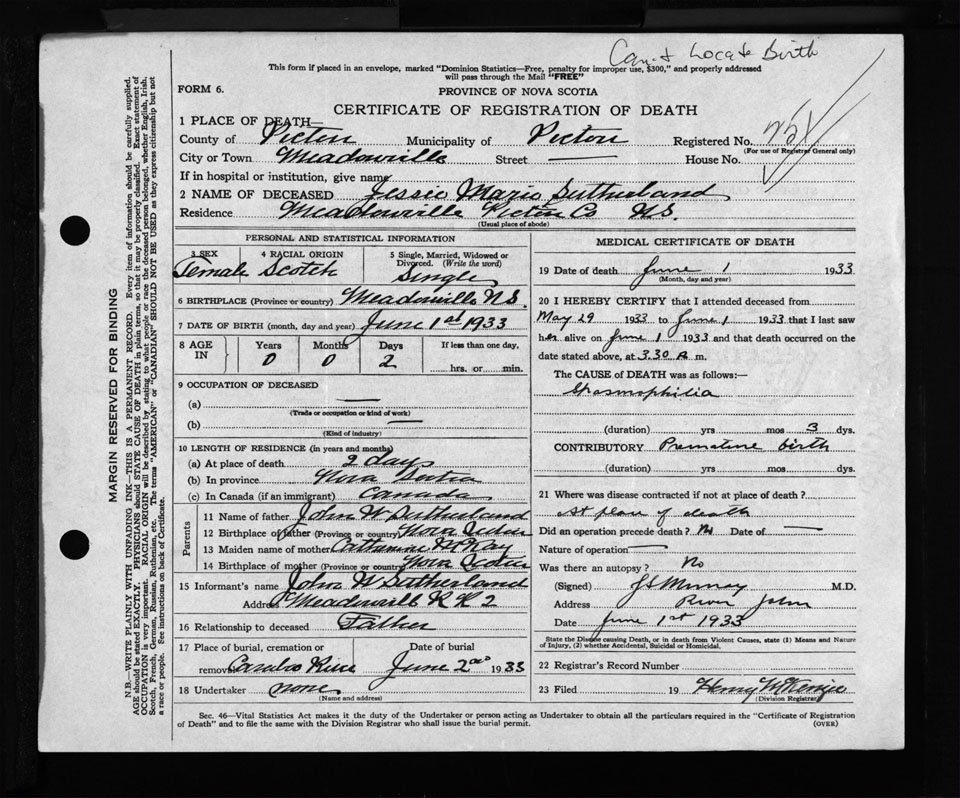 Can't Locate Birth
This form if placed in an envelope, marked "Dominion Statistics—Free, penalty for improper use, $300," and properly addressed
will pass through the Mail "FREE"
FORM 6.
PROVINCE OF NOVA SCOTIA
CERTIFICATE OF REGISTRATION OF DEATH
1 PLACE OF DEATH—
County of Pictou Municipality of Pictou Registered No.
(For use of Registrar General only)
City or Town Meadowville Street — House No.
If in hospital or institution, give name
2 NAME OF DECEASED Jessie Marie Sutherland
Residence Meadowville Pictou Co N.S.
(Usual place of abode)
PERSONAL AND STATISTICAL INFORMATION
3 SEX 4 RACIAL ORIGIN 5 Single, Married, Widowed or
Divorced. (Write the word)
Female Scotch Single
6 BIRTHPLACE (Province or country) Meadowville N.S.
7 DATE OF BIRTH (month, day and year) June 1st 1933
8 AGE IN Years Months Days If less than one day,
0 0 2 hrs. or min.
9 OCCUPATION OF DECEASED
(a) —
(Trade or occupation or kind of work)
(b) —
(Kind of industry)
10 LENGTH OF RESIDENCE (in years and months)
(a) At place of death 2 days
(b) In province Nova Scotia
(c) In Canada (if an immigrant) Canada
Parents
11 Name of father John W Sutherland
12 Birthplace of father (Province or country) Nova Scotia
13 Maiden name of mother Catherine McKay
14 Birthplace of mother (Province or country) Nova Scotia
15 Informant's name John W Sutherland
Address Meadowvill R R 2
16 Relationship to deceased Father
17 Place of burial, cremation or Date of burial
removal River June 2nd 1933
18 Undertaker none
(Name and address)
MEDICAL CERTIFICATE OF DEATH
19 Date of death June 1 1933
(Month, day and year)
20 I HEREBY CERTIFY that I attended deceased from
May 29 1933 to June 1 1933 that I last saw
her alive on June 1 1933 and that death occurred on the
date stated above, at 3.30 A m.
The CAUSE of DEATH was as follows:—
Spasmophilia
(duration) yrs mos 3 dys.
CONTRIBUTORY Premature birth
(duration) yrs mos dys.
21 Where was disease contracted if not at place of death?
At place of death
Did an operation precede death? No Date of —
Nature of operation —
Was there an autopsy? No
(Signed) Murray M.D.
Address River John
Date June 1st 1933
State the Disease causing Death, or in death from Violent Causes, state (1) Means and Nature
of Injury, (2) whether Accidental, Suicidal or Homicidal.
22 Registrar's Record Number
23 Filed 19 Henry McKenzie
(Division Registrar)
Sec. 46—Vital Statistics Act makes it the duty of the Undertaker or person acting as Undertaker to obtain all the particulars required in the "Certificate of Registration
of Death" and to file the same with the Division Registrar who shall issue the burial permit. (OVER)
MARGIN RESERVED FOR BINDING
N.B.—WRITE PLAINLY WITH UNFADING INK—THIS IS A PERMANENT RECORD. Every item of information should be carefully supplied.
AGE should be stated EXACTLY. PHYSICIANS should STATE CAUSE OF DEATH in plain terms, so that it may be properly classified. Exact statement of
OCCUPATION is very important. RACIAL ORIGIN will be described by stating to what people or race the deceased person belonged, whether English, Irish,
Scotch, French, German, Russian, Ruthenian, etc. The terms "AMERICAN" or "CANADIAN" SHOULD NOT BE USED as they express citizenship but not
a race or people. See instructions on back of Certificate.